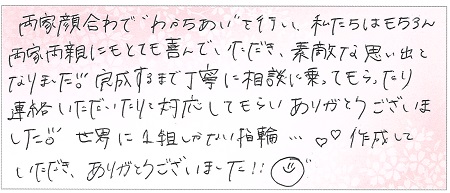 両家顔合わせで"わかちあい"を行い、私たちはもちろん
両家両親にもとても喜んでいただき、素敵な思い出と
なりました!! 完成するまで丁寧に相談に乗ってもらったり
連絡いただいたりと対応してもらいありがとうございま
した!! 世界に1組しかない指輪…♡♡ 作成して
いただき、ありがとうございました!!